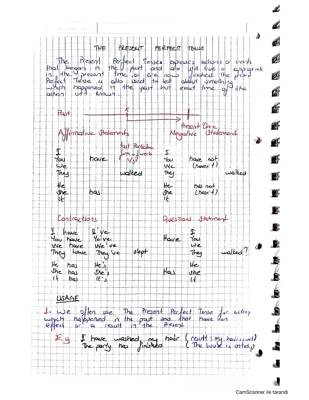 THE PRESENT PERFECT TENSE
The Present Perfect Tense expresses actions or events
that began in the past and are still true or appropriate
in the present time or are now finished. The
Perfect Tense is also used to tell about something
which happened in the past but exact time of the
action isn't known.
Past
Present time
Affirmative Statements Negative Statement
Past Participle
form of verb
V3
I
You have
We
They walked
I
You have not
We (haven't)
They walked
He
She has
It
He has not
She (hasn't)
It
Contractions Questions Statement
I have I've
You have You've
We have We've
They have They've slept
I
Have You
We
They walked?
He has He's
She has She's
It has It's
He
Has she
It
USAGE
1. We often use The Present Perfect Tense for action,
which happened in the past and that have an
effect or a result in the Present.
E.g I have washed my hair
The party has finished (The house is untidy)
CamScanner ile tarandı